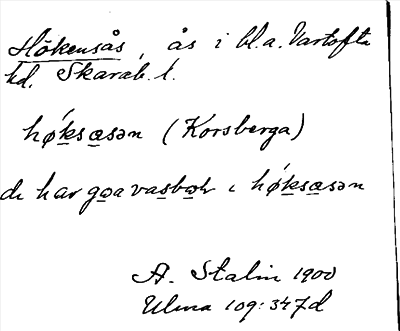 Hökensås, ås i bl.a. Vartofta
hd. Skarab. l.
hǿksa̲sən (Korsberga)
de har go̲a va sbæ̲r i hǿksa̲sən
A. Stalin 1900
Ulma 109:347d